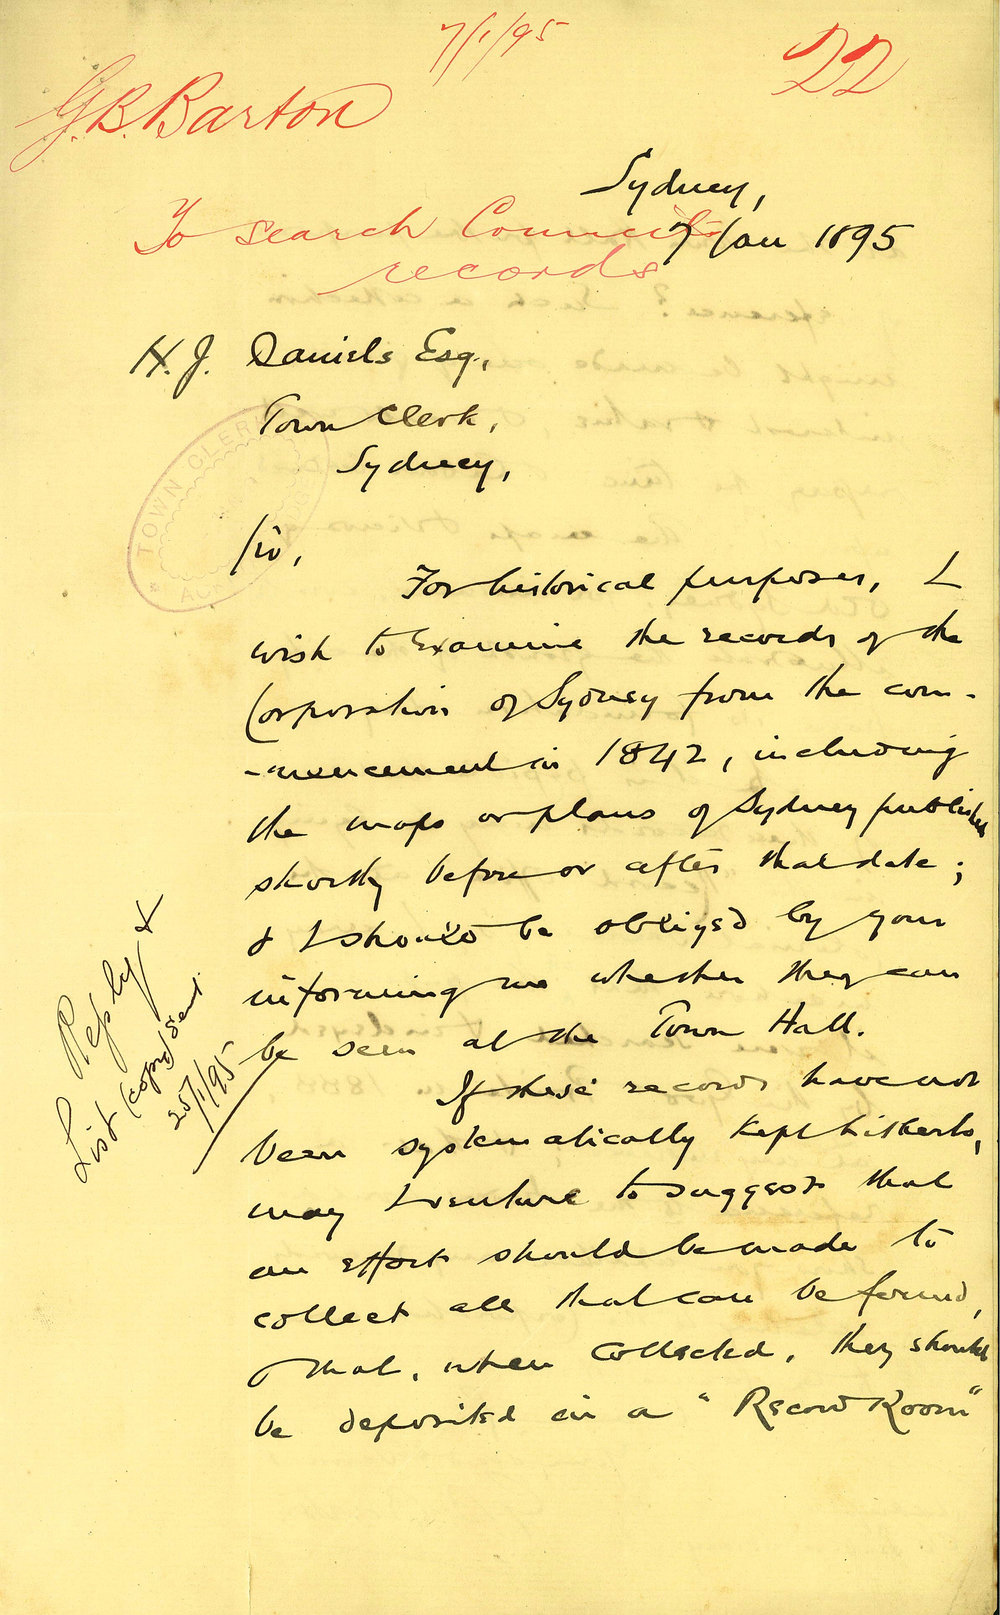 7/1/95
22
G.B. Barton
To search Council
records
Sydney,
7 Jan 1895
H. J. Daniels Esq.,
Town Clerk,
Sydney,
TOWN CLERK
Sir,
For historical purposes, I
wish to examine the records of the
Corporation of Sydney from the com-
-mencement in 1842, including
the maps or plans of Sydney published
shortly before or after that date;
& I should be obliged by your
informing me whether they can
be seen at the Town Hall.
If these records have not
been systematically kept hitherto,
may I venture to suggest that
an effort should be made to
collect all that can be found,
& that, when collected, they should
be deposited in a "Record Room"
Reply &
List (copy) sent
25/1/95